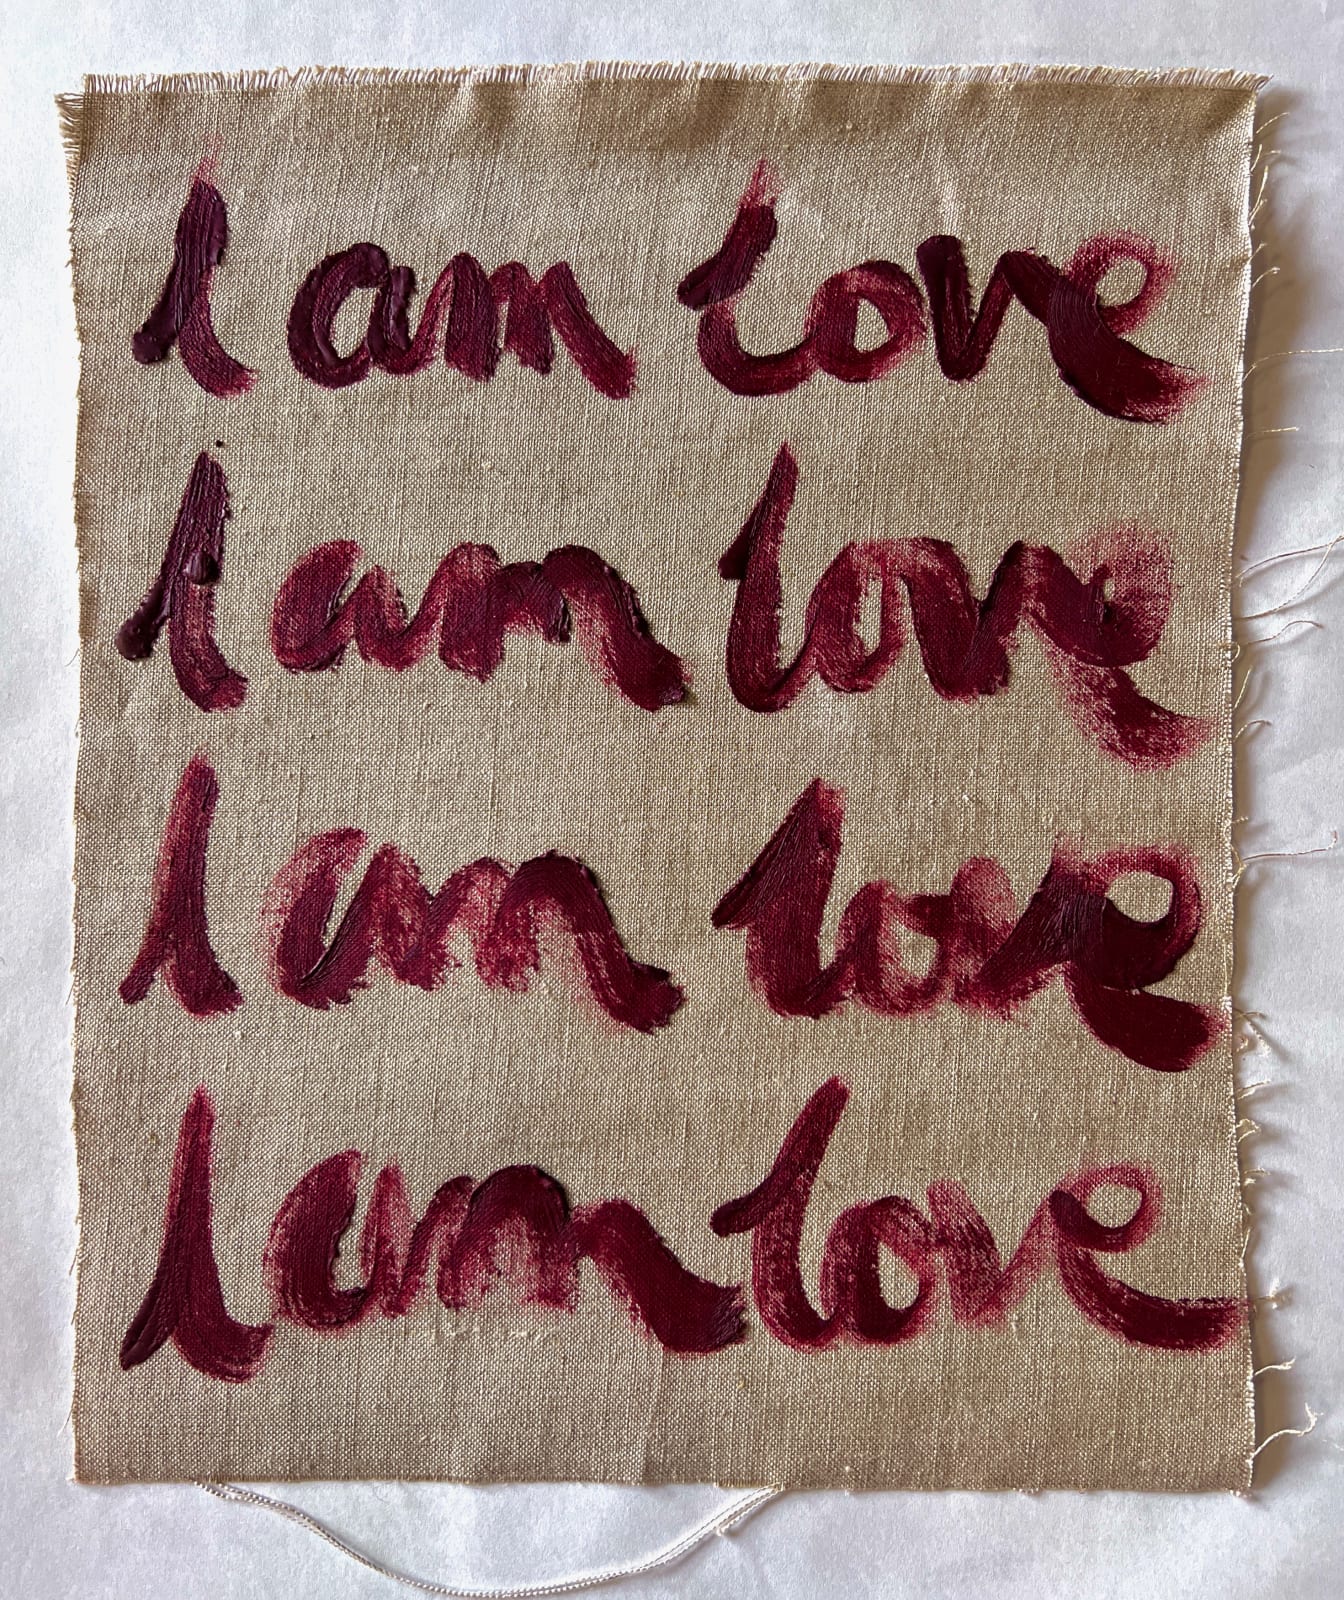 I am love
I am love
I am love
I am love